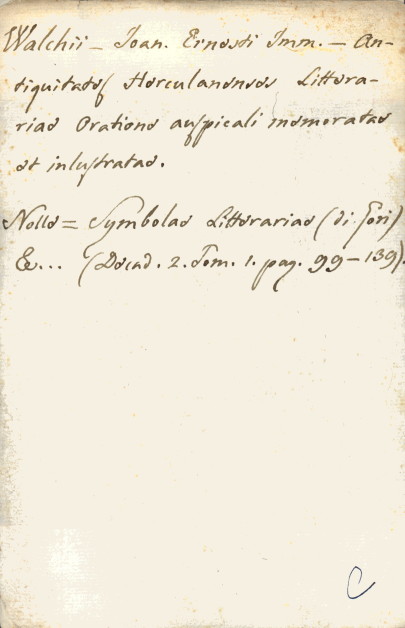 Walchii - Joan. Ernesti Imm. - An-
tiquitates Herculanenses Littera-
riae Oratione auspicali memoratae
et inlustratae.
Nelle = Symbolae Litterariae (di Gori)
&... (Decad. 2. Tom. 1. pag. 99-139).
C